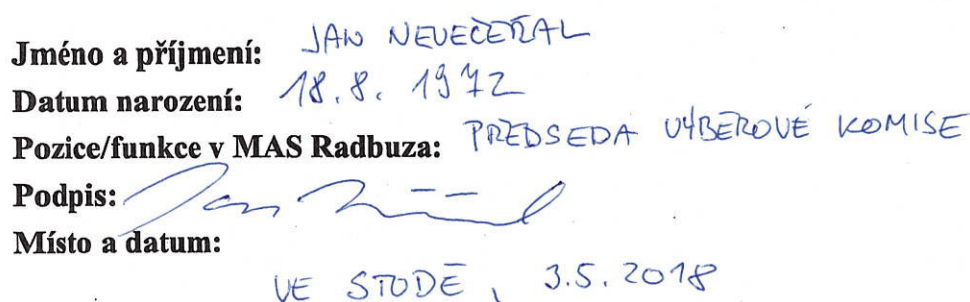 Jméno a příjmení: JAN NEVEČEŘAL
Datum narození: 18.8.1972
Pozice/funkce v MAS Radbuza: PŘEDSEDA VÝBĚROVÉ KOMISE
Podpis:
Místo a datum:
VE STODĚ, 3.5.2018